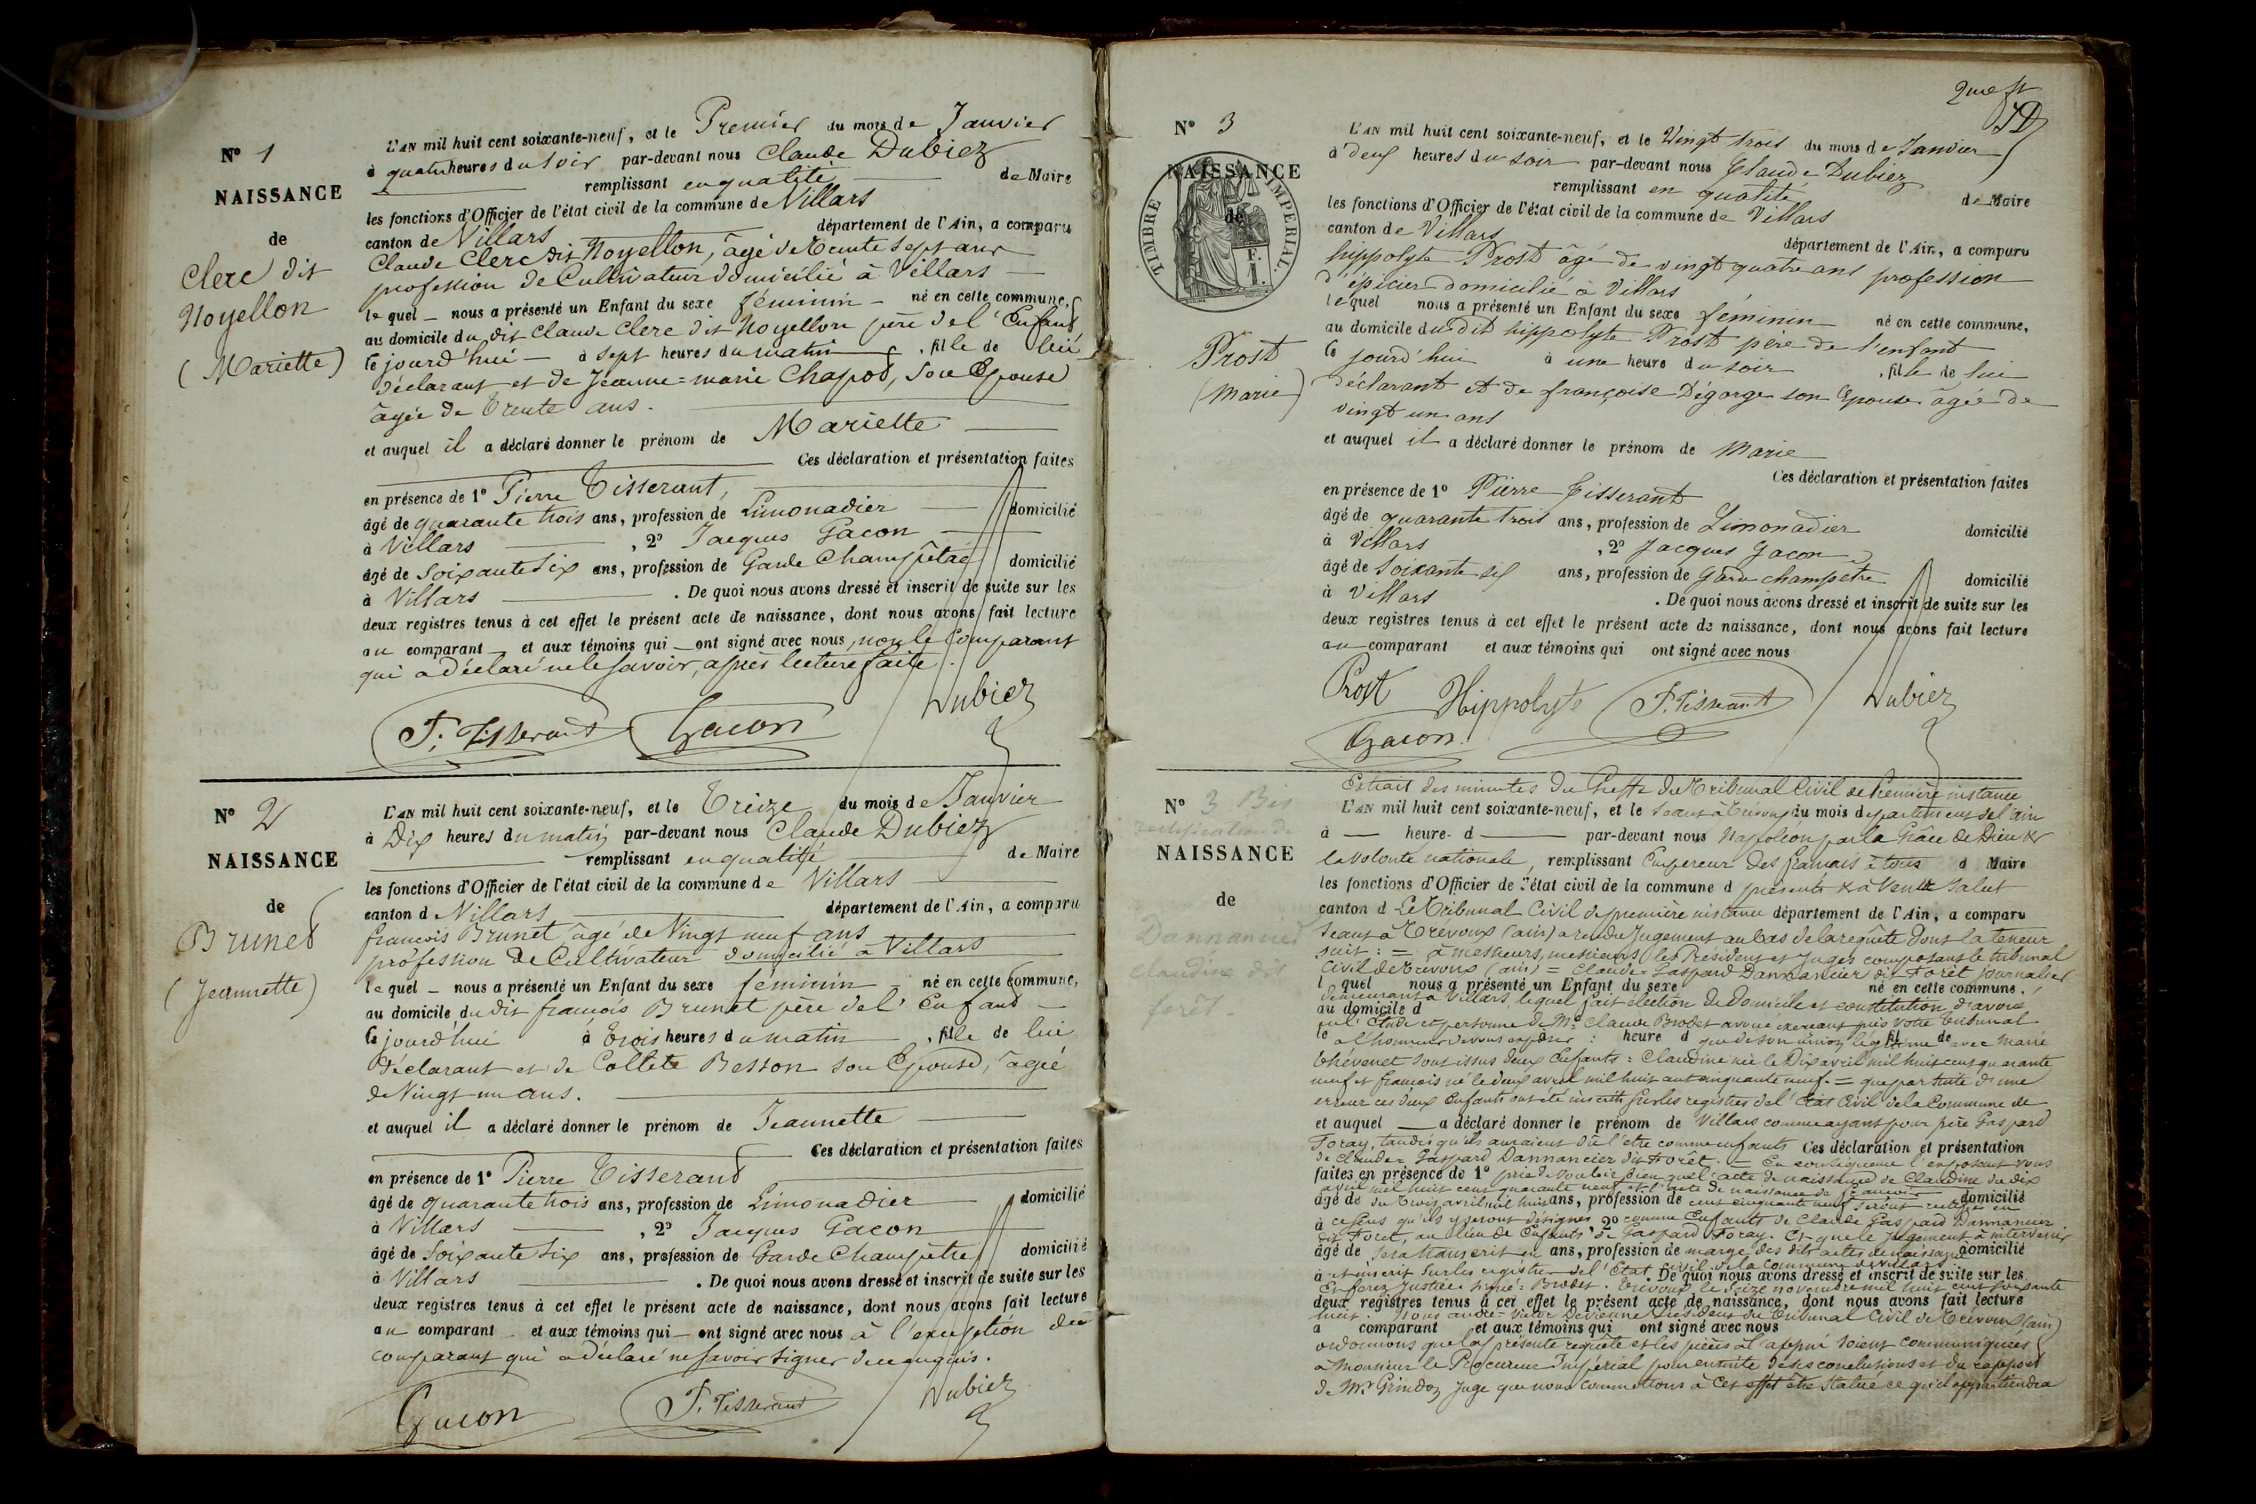 N° 1
NAISSANCE
de
Clerc dit
Noyellon
(Mariette)
L'AN mil huit cent soixante-neuf, et le Premier du mois de Janvier
à quatre heures du soir par-devant nous Claude Dubiez
remplissant en qualité de Maire
les fonctions d'Officier de l'état civil de la commune de Villars
canton de Villars département de l'Ain, a comparu
Claude Clerc dit Noyellon, âgé de trente sept ans
profession de Cultivateur domicilié à Villars
le quel nous a présenté un Enfant du sexe féminin né en cette commune,
au domicile du dit Claude Clerc dit Noyellon père de l'Enfant
ce jourd'hui à sept heures du matin, fille de lui
déclarant et de Jeanne=marie Chapod, son Epouse
âgée de trente ans.
et auquel il a déclaré donner le prénom de Mariette
Ces déclaration et présentation faites
en présence de 1° Pierre Tisserant,
âgé de quarante trois ans, profession de Limonadier domicilié
à Villars, 2° Jacques Gacon
âgé de Soixante Six ans, profession de Garde Champêtre domicilié
à Villars. De quoi nous avons dressé et inscrit de suite sur les
deux registres tenus à cet effet le présent acte de naissance, dont nous avons fait lecture
au comparant et aux témoins qui ont signé avec nous, non le Comparant
qui a déclaré ne le savoir, après lecture faite.
P. Tisserant Gacon Dubiez
N° 2
NAISSANCE
de
Brunet
(Jeannette)
L'AN mil huit cent soixante-neuf, et le Treize du mois de Janvier
à Dix heures du matin par-devant nous Claude Dubiez
remplissant en qualité de Maire
les fonctions d'Officier de l'état civil de la commune de Villars
canton d Villars département de l'Ain, a comparu
françois Brunet âgé de Vingt neuf ans
profession de Cultivateur domicilié à Villars
le quel nous a présenté un Enfant du sexe féminin né en cette commune,
au domicile du dit françois Brunet père de l'Enfant
ce jourd'hui à trois heures du matin, fille de lui
Déclarant et de Collete Besson son Epouse, âgée
de Vingt un ans.
et auquel il a déclaré donner le prénom de Jeannette
Ces déclaration et présentation faites
en présence de 1° Pierre Tisserand
âgé de quarante trois ans, profession de Limonadier domicilié
à Villars, 2° Jacques Gacon
âgé de Soixante Six ans, profession de Garde Champêtre domicilié
à Villars. De quoi nous avons dressé et inscrit de suite sur les
deux registres tenus à cet effet le présent acte de naissance, dont nous avons fait lecture
au comparant et aux témoins qui ont signé avec nous à l'exception du
comparant qui a déclaré ne savoir signer de ce enquis.
Gacon P. Tisserant Dubiez
N° 3
NAISSANCE
de
TIMBRE IMPERIAL.
Prost
(Marie)
L'AN mil huit cent soixante-neuf, et le Vingt trois du mois de Janvier
à deux heures du soir par-devant nous Claude Dubiez
remplissant en qualité de Maire
les fonctions d'Officier de l'état civil de la commune de Villars
canton de Villars département de l'Ain, a comparu
hippolyte Prost âgé de vingt quatre ans profession
d'épicier domicilié à Villars
lequel nous a présenté un Enfant du sexe féminin né en cette commune,
au domicile du dit hippolyte Prost père de l'enfant
ce jourd'hui à une heure du soir, fille de lui
déclarant et de françoise Dégorge son Epouse âgée de
vingt un ans
et auquel il a déclaré donner le prénom de Marie
Ces déclaration et présentation faites
en présence de 1° Pierre Tisserant
âgé de quarante trois ans, profession de Limonadier domicilié
à Villars, 2° Jacques Gacon
âgé de Soixante six ans, profession de Garde champêtre domicilié
à Villars. De quoi nous avons dressé et inscrit de suite sur les
deux registres tenus à cet effet le présent acte de naissance, dont nous avons fait lecture
au comparant et aux témoins qui ont signé avec nous
Prost Hippolyte P. Tisserant Dubiez
Gacon
N° 3 Bis
rectification de
NAISSANCE
de
Dannancier
Claudine dit
forêt
Extrait des minutes du Greffe du Tribunal Civil de Première instance
L'AN mil huit cent soixante-neuf, et le Séant à Trévoux du mois d département de l'ain
à heure d par-devant nous Napoléon par la Grâce de Dieu &
la volonté nationale, remplissant Empereur des français à tous d Maire
les fonctions d'Officier de l'état civil de la commune d présents & à venir Salut
canton d Le Tribunal Civil de première instance département de l'Ain, a comparu
Séant à Trévoux (ain) a rendu Jugement au bas de la requête dont la teneur
suit: = à messieurs, messieurs les Président et Juges composant le tribunal
Civil de Trévoux (ain) = Claude Gaspard Dannancier dit Forêt Journalier
l quel nous a présenté un Enfant du sexe né en cette commune,
demeurant à Villars, lequel fait élection de domicile et constitution d'avoué
au domicile d
en l'étude et personne de Me Claude Brobet avoué exerçant près votre tribunal
le à heure d fil de
a l'honneur de vous exposer: que de son union légitime avec Marie
thévenet sont issus deux Enfants: Claudine née le Dix avril mil huit cent quarante
neuf et françois né le deux avril mil huit cent cinquante neuf. = que par suite d'une
erreur ces deux Enfants ont été inscrits sur les registres de l'Etat Civil de la Commune de
et auquel a déclaré donner le prénom de Villars comme ayant pour père Gaspard
Foray, tandis qu'ils auraient dû l'être comme enfants Ces déclaration et présentation
de Claude Gaspard Dannancier dit Forêt. = En conséquence l'exposant vous
faites en présence de 1° prie de vouloir bien que l'acte de naissance de Claudine du dix
avril mil huit cent quarante neuf et l'acte de naissance de françois
âgé de du trois avril mil huit ans, profession de cent cinquante neuf seront rectifiés en domicilié
à ce sens qu'ils y seront désignés, 2° comme Enfants de Claude Gaspard Dannancier
dit Forêt, au lieu de Enfants de Gaspard Foray. Et que le jugement à intervenir
âgé de sera transcrit en ans, profession de marge des dits actes de naissance domicilié
à et inscrit sur les registres de l'Etat civil de la commune de Villars. De quoi nous avons dressé et inscrit de suite sur les
Et ferez Justice. Signé: Brobet. Trévoux le Seize novembre mil huit cent soixante
deux registres tenus à cet effet le présent acte de naissance, dont nous avons fait lecture
Président du Tribunal Civil de Trévoux (ain)
a comparant et aux témoins qui ont signé avec nous
ordonnons que la présente requête et les pièces à l'appui soient communiquées
à Monsieur le Procureur Impérial pour ensuite de ses conclusions et du rapport
de Mr Grindoz Juge que nous commettons à cet effet être Statué ce qu'il appartiendra